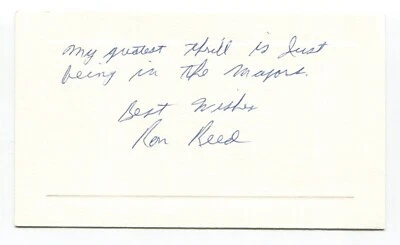 My greatest thrill is Just
being in the Majors.
Best Wishes
Ron Reed